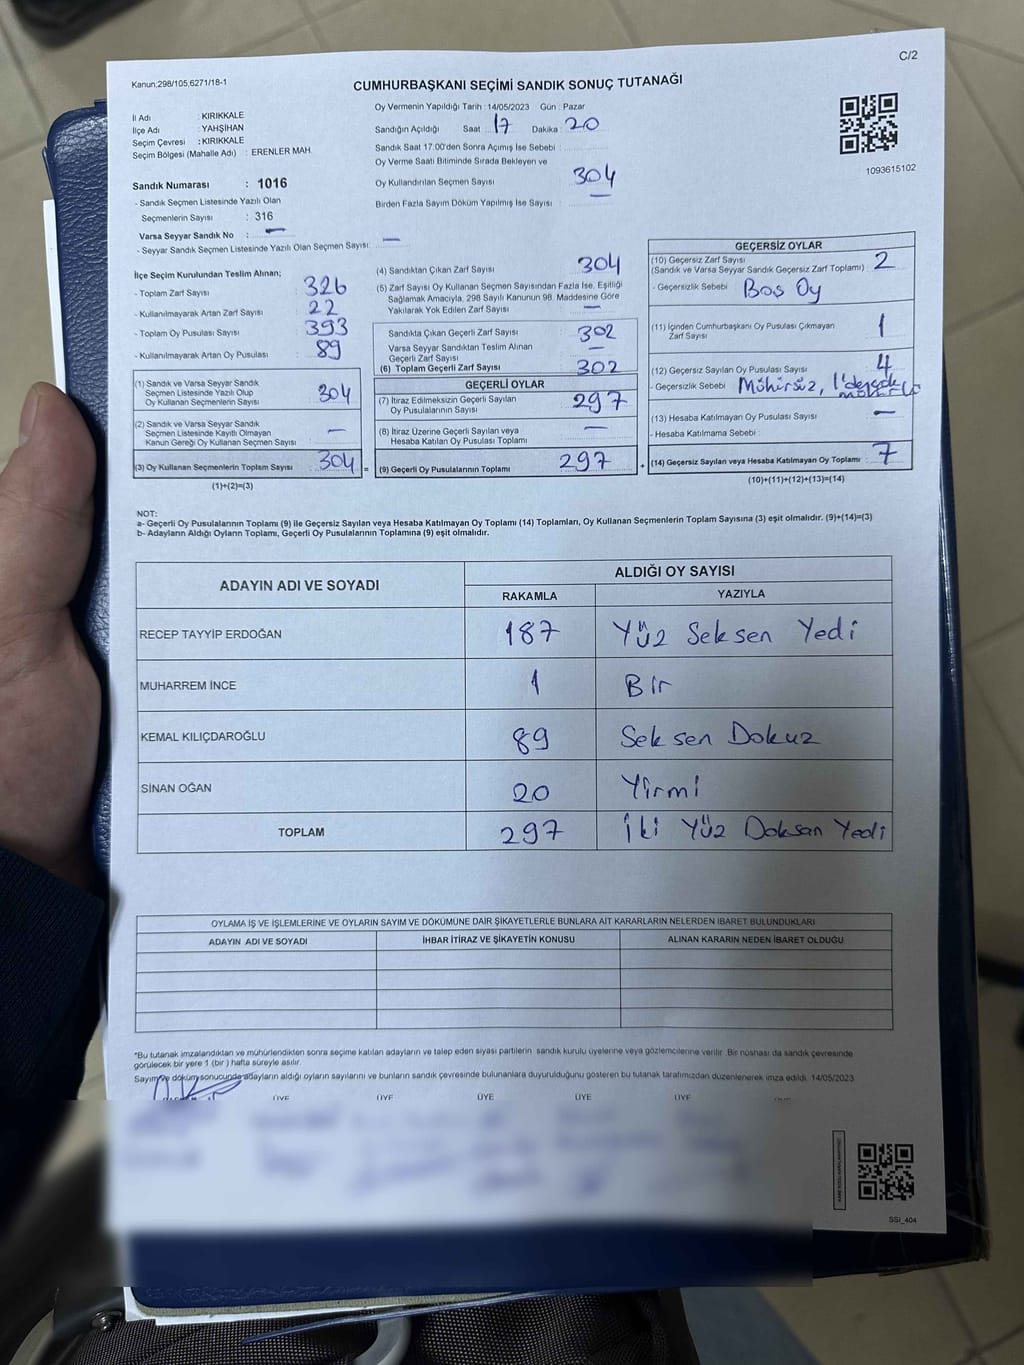 C/2
Kanun,298/105,6271/18-1
CUMHURBAŞKANI SEÇİMİ SANDIK SONUÇ TUTANAĞI
İl Adı : KIRIKKALE
İlçe Adı : YAHŞİHAN
Seçim Çevresi : KIRIKKALE
Seçim Bölgesi (Mahalle Adı) : ERENLER MAH.
Oy Vermenin Yapıldığı Tarih : 14/05/2023 Gün : Pazar
Sandığın Açıldığı Saat : 17 Dakika : 20
Sandık Saat 17:00'den Sonra Açımış İse Sebebi :
Oy Verme Saati Bitiminde Sırada Bekleyen ve
Oy Kullandırılan Seçmen Sayısı 304
Birden Fazla Sayım Döküm Yapılmış İse Sayısı : —
1093615102
Sandık Numarası : 1016
- Sandık Seçmen Listesinde Yazılı Olan
Seçmenlerin Sayısı : 316
Varsa Seyyar Sandık No : —
- Seyyar Sandık Seçmen Listesinde Yazılı Olan Seçmen Sayısı: —
İlçe Seçim Kurulundan Teslim Alınan;
- Toplam Zarf Sayısı : 326
- Kullanılmayarak Artan Zarf Sayısı : 22
- Toplam Oy Pusulası Sayısı : 393
- Kullanılmayarak Artan Oy Pusulası : 89
(1) Sandık ve Varsa Seyyar Sandık
Seçmen Listesinde Yazılı Olup
Oy Kullanan Seçmenlerin Sayısı : 304
(2) Sandık ve Varsa Seyyar Sandık
Seçmen Listesinde Kayıtlı Olmayan
Kanun Gereği Oy Kullanan Seçmen Sayısı : —
(3) Oy Kullanan Seçmenlerin Toplam Sayısı : 304 =
(1)+(2)=(3)
(4) Sandıktan Çıkan Zarf Sayısı : 304
(5) Zarf Sayısı Oy Kullanan Seçmen Sayısından Fazla İse, Eşitliği
Sağlamak Amacıyla, 298 Sayılı Kanunun 98. Maddesine Göre
Yakılarak Yok Edilen Zarf Sayısı : —
Sandıkta Çıkan Geçerli Zarf Sayısı : 302
Varsa Seyyar Sandıktan Teslim Alınan
Geçerli Zarf Sayısı : —
(6) Toplam Geçerli Zarf Sayısı : 302
GEÇERLİ OYLAR
(7) İtiraz Edilmeksizin Geçerli Sayılan
Oy Pusulalarının Sayısı : 297
(8) İtiraz Üzerine Geçerli Sayılan veya
Hesaba Katılan Oy Pusulası Toplamı : —
(9) Geçerli Oy Pusulalarının Toplamı : 297 +
GEÇERSİZ OYLAR
(10) Geçersiz Zarf Sayısı
(Sandık ve Varsa Seyyar Sandık Geçersiz Zarf Toplamı) : 2
- Geçersizlik Sebebi : Boş Oy
(11) İçinden Cumhurbaşkanı Oy Pusulası Çıkmayan
Zarf Sayısı : 1
(12) Geçersiz Sayılan Oy Pusulası Sayısı : 4
- Geçersizlik Sebebi : Mühürsüz,
(13) Hesaba Katılmayan Oy Pusulası Sayısı : —
- Hesaba Katılmama Sebebi :
(14) Geçersiz Sayılan veya Hesaba Katılmayan Oy Toplamı : 7
(10)+(11)+(12)+(13)=(14)
NOT:
a- Geçerli Oy Pusulalarının Toplamı (9) ile Geçersiz Sayılan veya Hesaba Katılmayan Oy Toplamı (14) Toplamları, Oy Kullanan Seçmenlerin Toplam Sayısına (3) eşit olmalıdır. (9)+(14)=(3)
b- Adayların Aldığı Oyların Toplamı, Geçerli Oy Pusulalarının Toplamına (9) eşit olmalıdır.
ADAYIN ADI VE SOYADI ALDIĞI OY SAYISI
RAKAMLA YAZIYLA
RECEP TAYYİP ERDOĞAN 187 Yüz Seksen Yedi
MUHARREM İNCE 1 Bir
KEMAL KILIÇDAROĞLU 89 Seksen Dokuz
SİNAN OĞAN 20 Yirmi
TOPLAM 297 İki Yüz Doksan Yedi
OYLAMA İŞ VE İŞLEMLERİNE VE OYLARIN SAYIM VE DÖKÜMÜNE DAİR ŞİKAYETLERLE BUNLARA AİT KARARLARIN NELERDEN İBARET BULUNDUKLARI
ADAYIN ADI VE SOYADI İHBAR İTİRAZ VE ŞİKAYETİN KONUSU ALINAN KARARIN NEDEN İBARET OLDUĞU
*Bu tutanak imzalandıktan ve mühürlendikten sonra seçime katılan adayların ve talep eden siyasi partilerin sandık kurulu üyelerine veya gözlemcilerine verilir. Bir nüshası da sandık çevresinde
görülecek bir yere 1 (bir ) hafta süreyle asılır.
Sayım ve döküm sonucunda adayların aldığı oyların sayılarını ve bunların sandık çevresinde bulunanlara duyurulduğunu gösteren bu tutanak tarafımızdan düzenlenerek imza edildi. 14/05/2023
ÜYE ÜYE ÜYE ÜYE ÜYE
SSİ_404